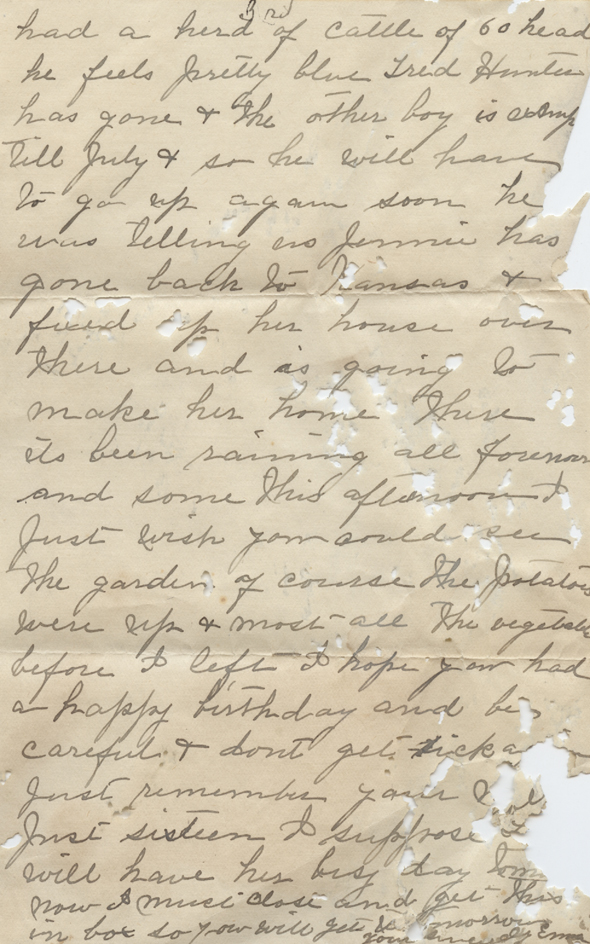 3rd
had a herd of cattle of 60 head
he feels pretty blue Fred Hunter
has gone & the other boy is
till July & so he will have
to go up again soon he
was telling us Jennie has
gone back to Kansas &
fixed up her house over
there and is going to
make her home there
its been raining all forenoon
and some this afternoon I
Just wish you could see
the garden of course the potatoes
were up & most all the vegetable
before I left I hope you had
a happy birthday and be
careful & dont get sick
Just remember your
Just sixteen I suppose
will have her busy day
now I must close and get this
in box so you will get it tomorrow
your friend Emma